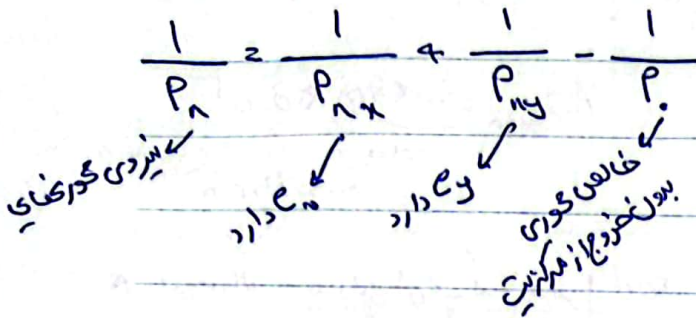 1/Pn = 1/Pnx + 1/Pny - 1/P0
نیروی محوری نهایی
ex دارد
ey دارد
خالص محوری
بدون خروج از مرکزیت